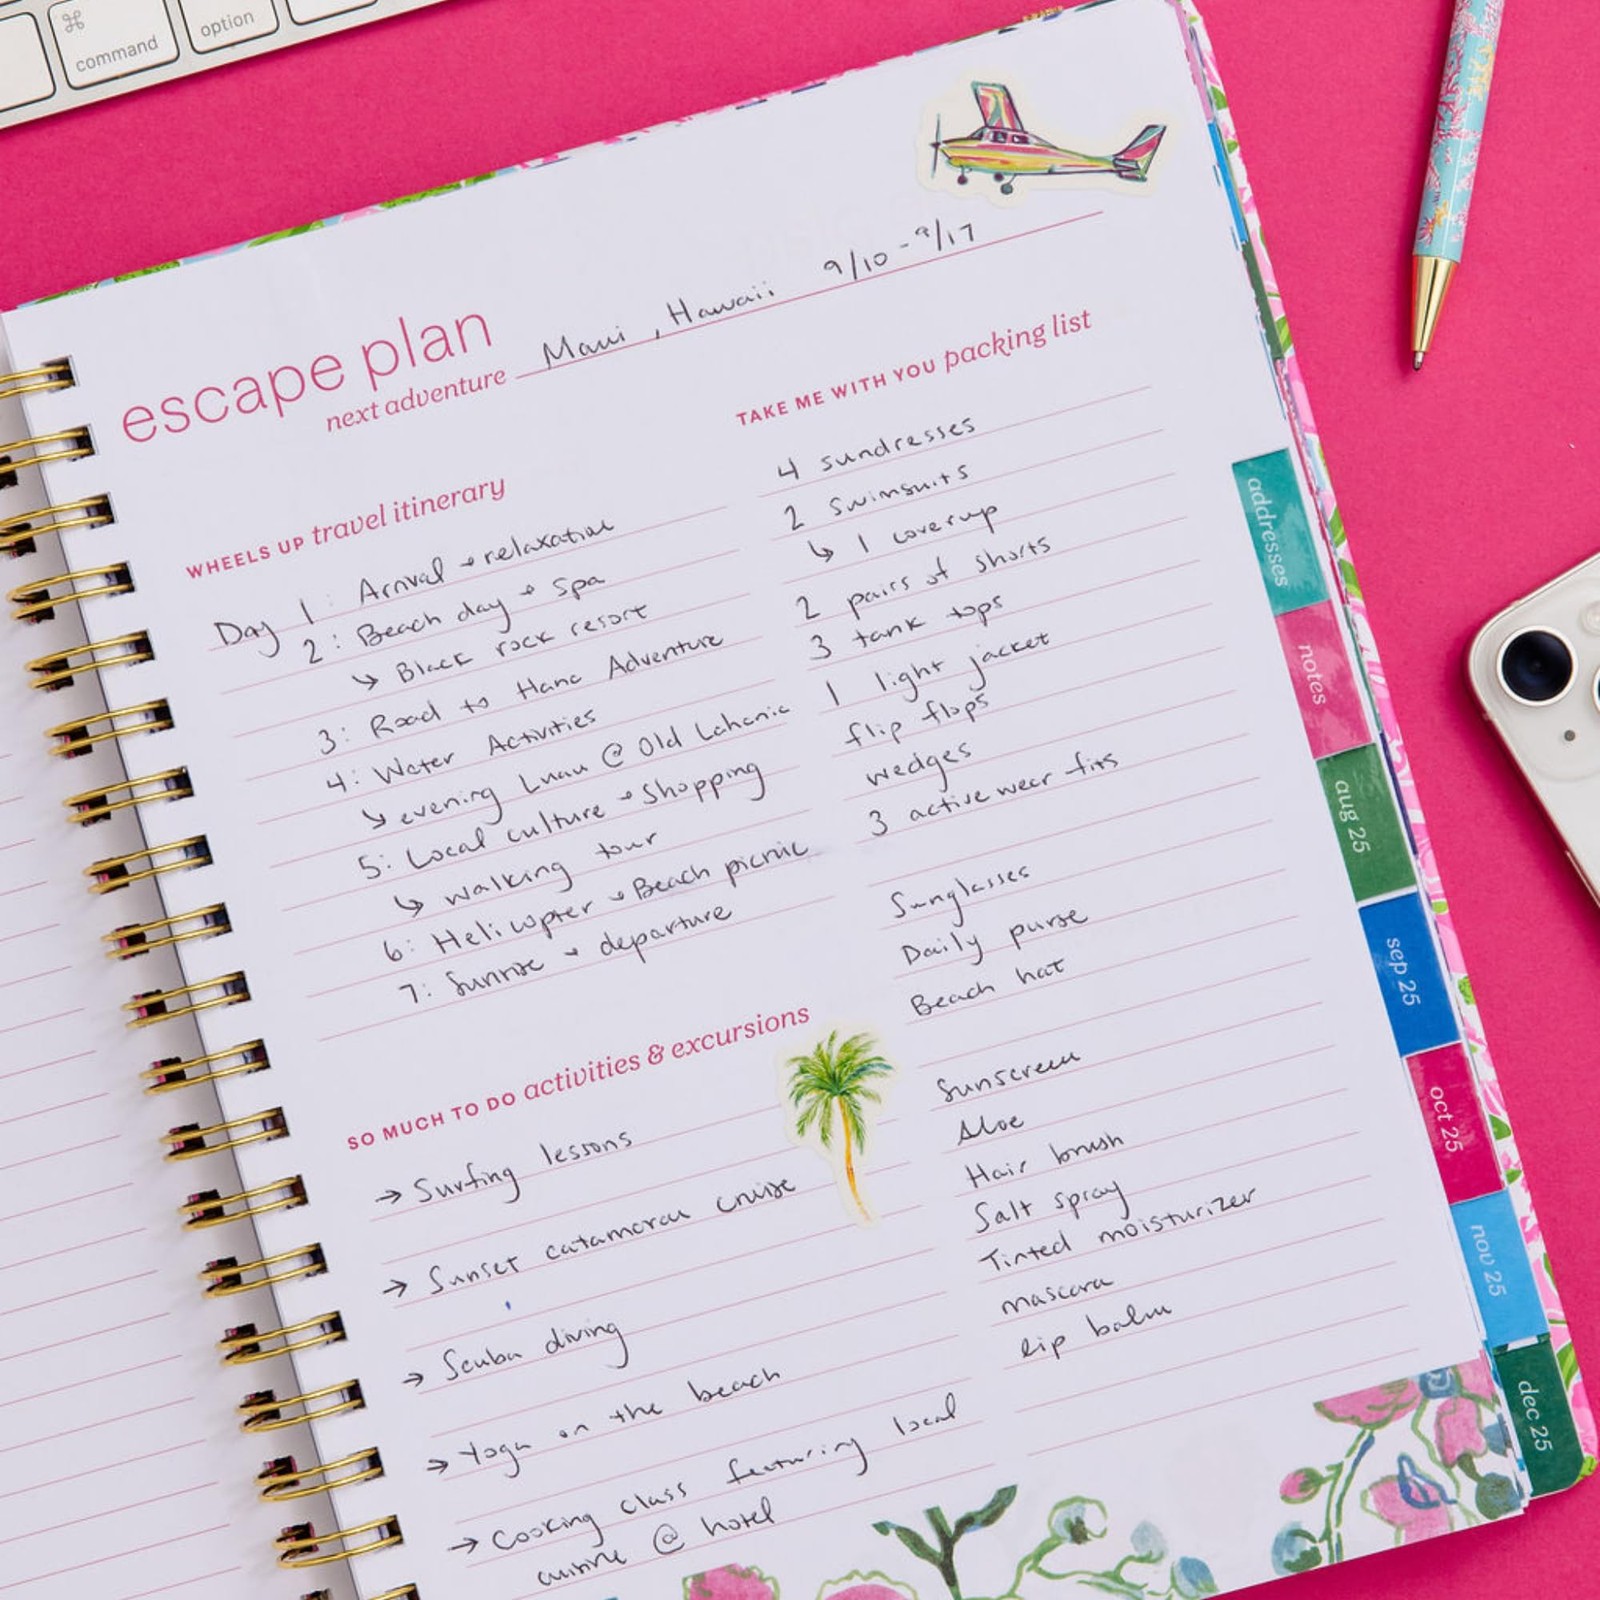 ⌘
command
option
escape plan
next adventure Maui, Hawaii 9/10 - 9/17
WHEELS UP travel itinerary
Day 1: Arrival + relaxation
2: Beach day + spa
↳ Black rock resort
3: Road to Hana Adventure
4: Water Activities
↳ evening Luau @ Old Lahania
5: Local culture + shopping
↳ walking tour
6: Helicopter + Beach picnic
7: Sunrise + departure
SO MUCH TO DO activities & excursions
→ Surfing lessons
→ Sunset catamaran cruise
→ Scuba diving
→ Yoga on the beach
→ Cooking class featuring local
cuisine @ hotel
TAKE ME WITH YOU packing list
4 sundresses
2 swimsuits
↳ 1 coverup
2 pairs of shorts
3 tank tops
1 light jacket
flip flops
wedges
3 active wear fits
Sunglasses
Daily purse
Beach hat
Sunscreen
Aloe
Hair brush
Salt spray
Tinted moisturizer
mascara
lip balm
addresses
notes
aug 25
sep 25
oct 25
nov 25
dec 25